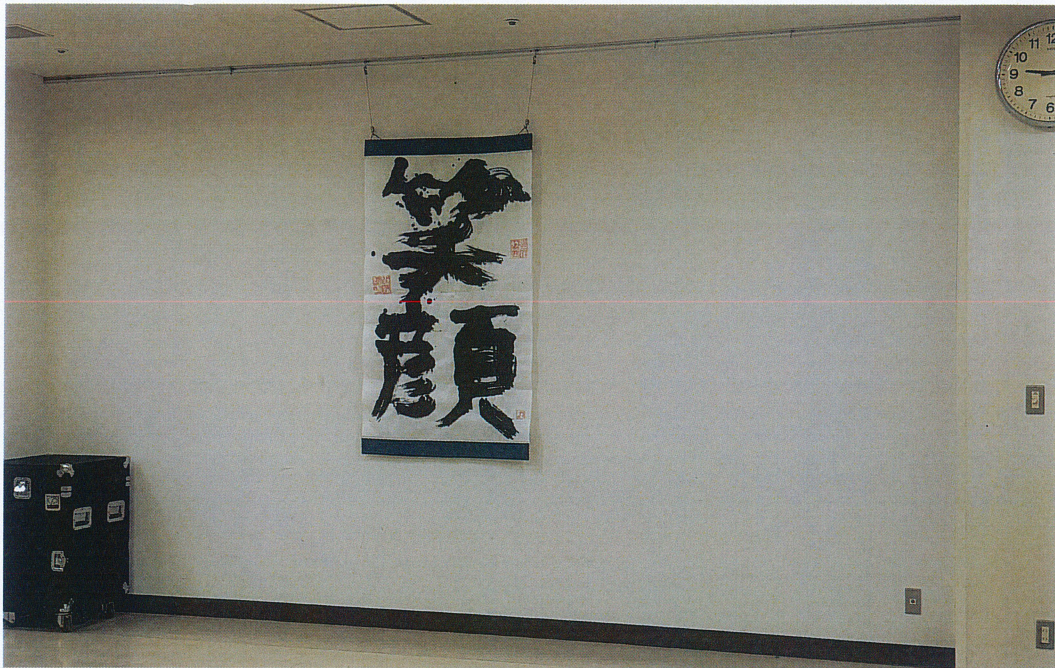 笑
顔
11 12
10
9
8
7 6